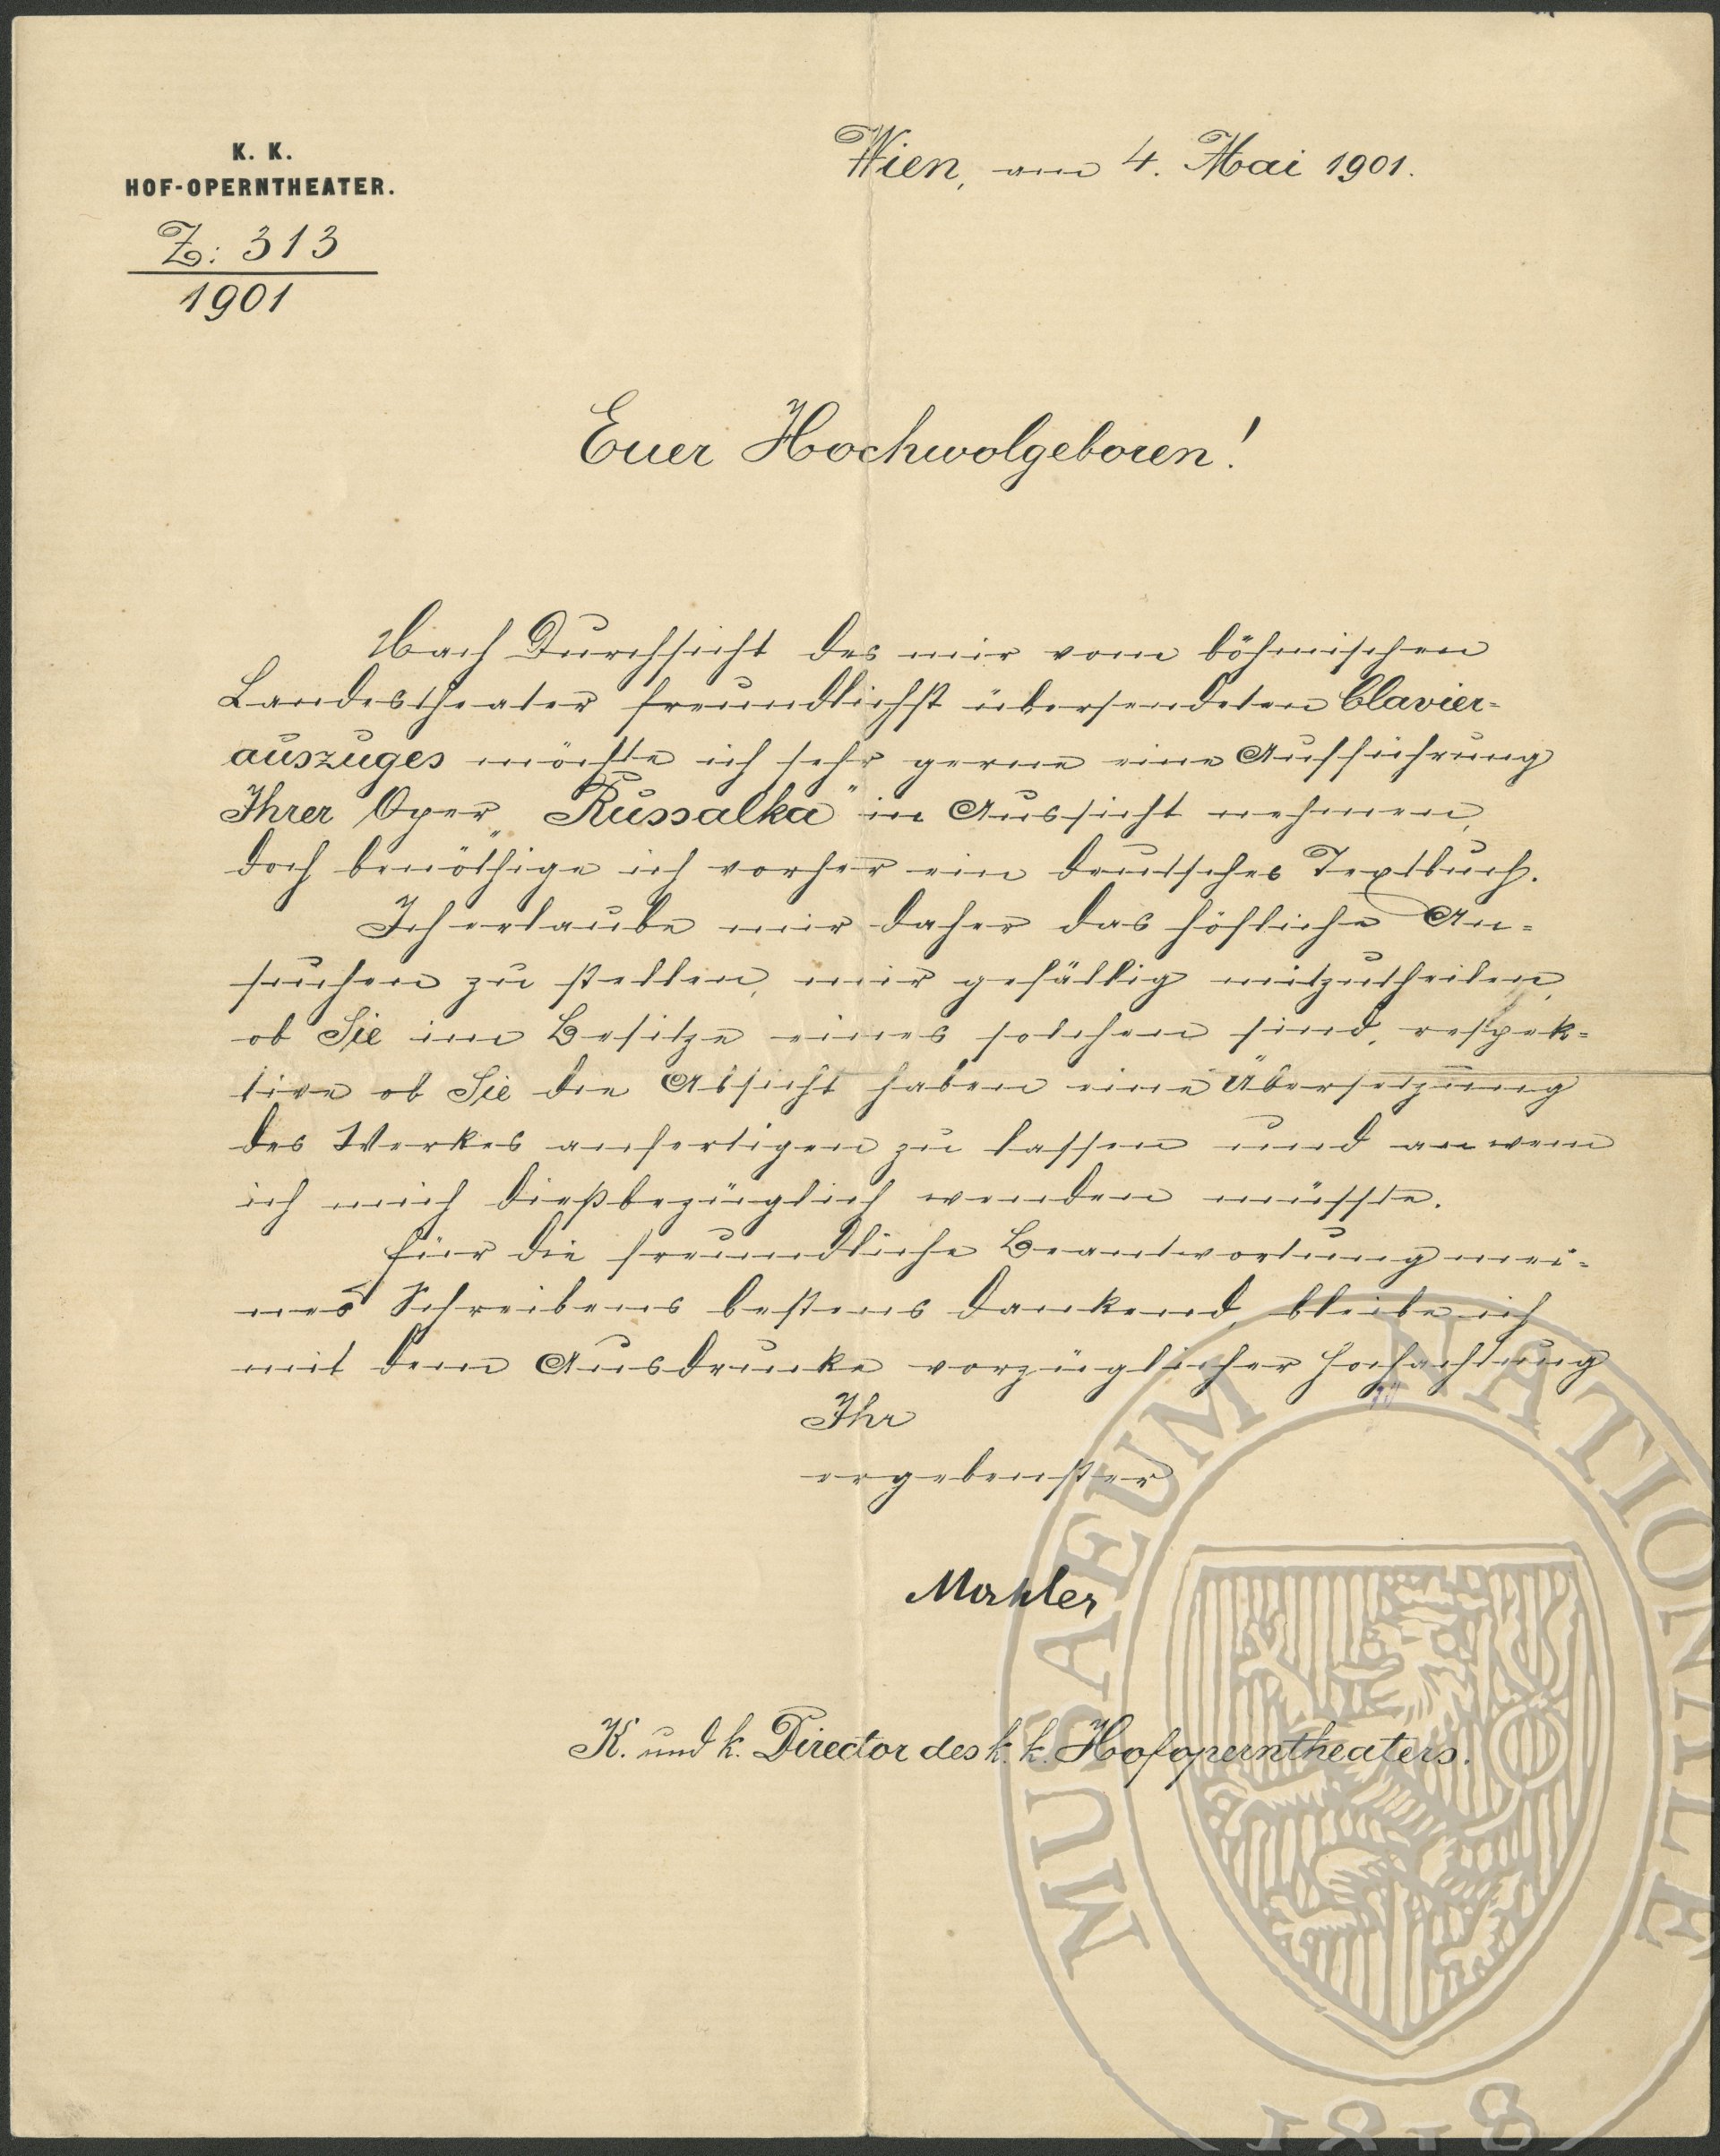 K. K.
HOF-OPERNTHEATER.
Z: 313
1901
Wien, am 4. Mai 1901.
Euer Hochwolgeboren!
Nach Durchsicht des mir vom böhmischen
Landestheater freundlichst übersendeten Clavier=
auszuges möchte ich sehr gerne eine Aufführung
Ihrer Oper „Russalka" in Aussicht nehmen,
doch benöthige ich vorher ein deutsches Textbuch.
Ich erlaube mir daher das höfliche An=
suchen zu stellen, mir gefällig mitzutheilen,
ob Sie im Besitze eines solchen sind, respek=
tive ob Sie die Absicht haben eine Übersetzung
des Werkes anfertigen zu lassen und an wem
ich mich dießbezüglich wenden müsste.
Für die freundliche Beantwortung mei=
nes Schreibens bestens dankend, bleibe ich
mit dem Ausdrucke vorzüglicher Hochachtung
Ihr
ergebenster
Mahler
K. und k. Director des k. k. Hofoperntheaters.
MUSAEUM NATIONALE
1818